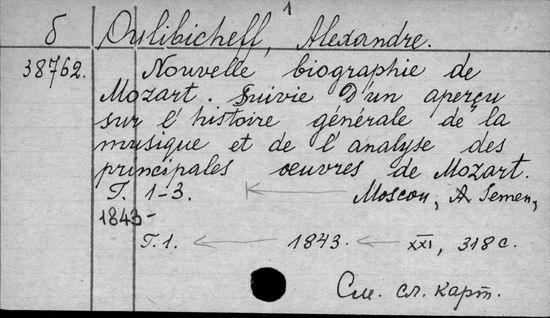 1
б Oulibicheff, Alexandre.
38762. Nouvelle biographie de
Mozart. Suivie d'un aperçu
sur l'histoire générale de la
musique et de l'analyse des
principales œuvres de Mozart.
Т. 1-3. Moscou, A Semen,
1843-
Т.1. 1843. XXI, 318 с.
См. сл. карт.